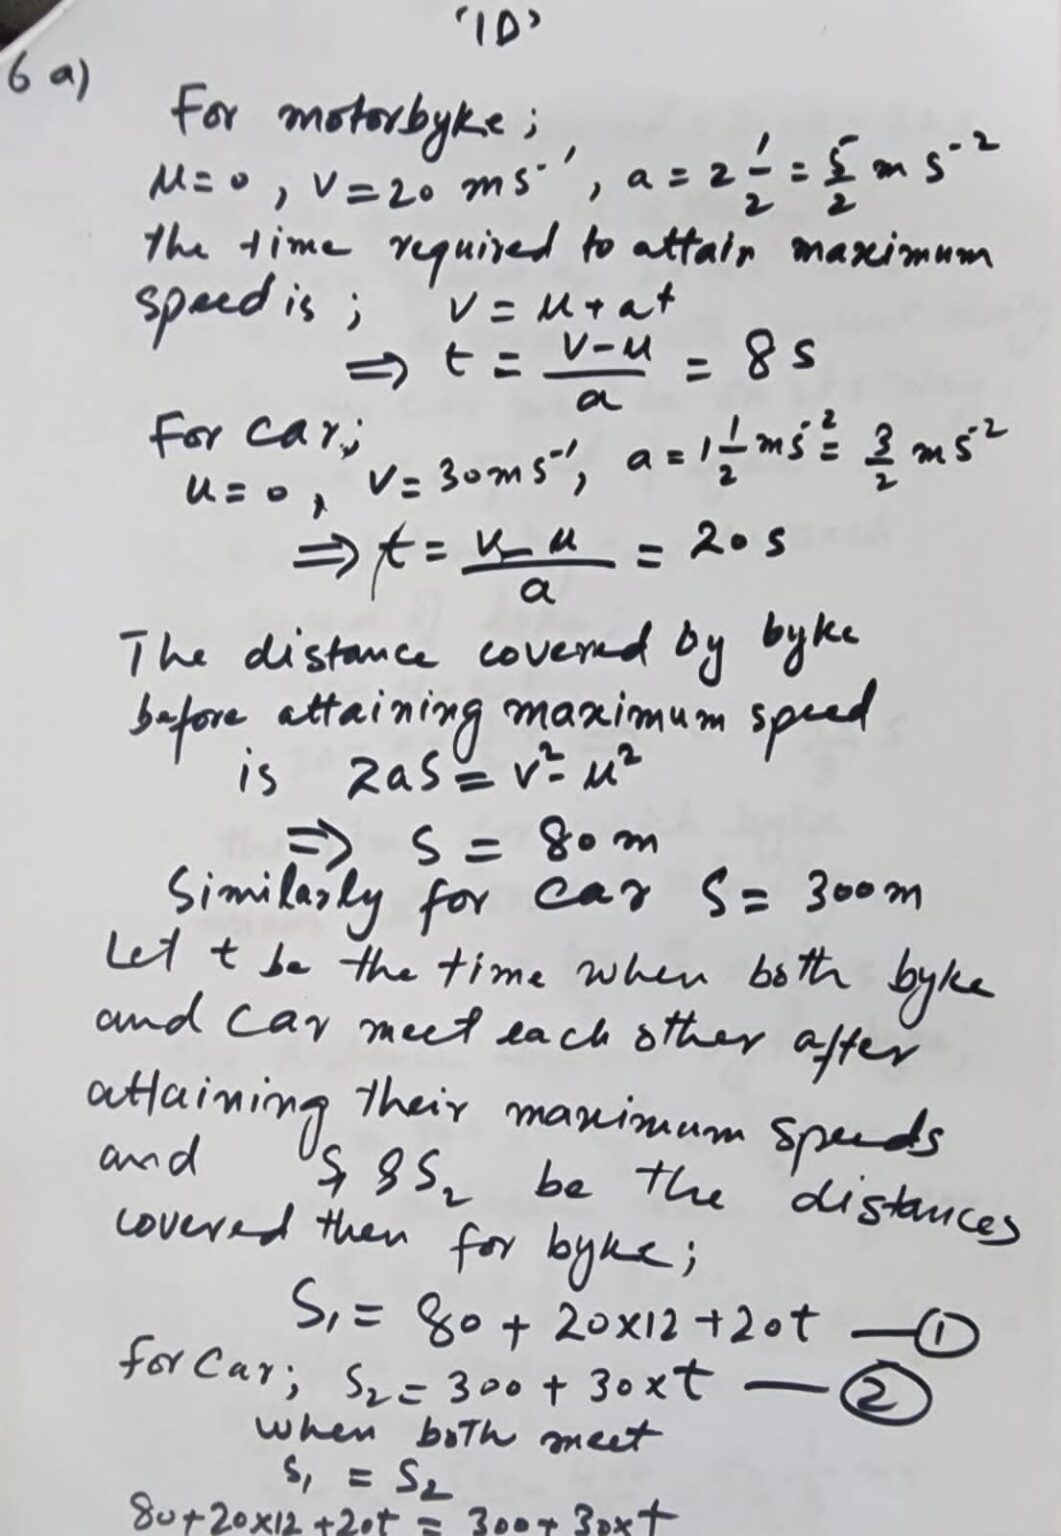 '10'
6 a)
For motorbyke;
u=0, v=20 ms⁻¹, a = 2 1/2 = 5/2 m s⁻²
The time required to attain maximum
speed is; v = u + at
⇒ t = (v-u)/a = 8 s
For car;
u=0, v=30 ms⁻¹, a = 1 1/2 ms⁻² = 3/2 ms⁻²
⇒ t = (v-u)/a = 20 s
The distance covered by byke
before attaining maximum speed
is 2aS = v² - u²
⇒ S = 80 m
Similarly for car S = 300m
Let t be the time when both byke
and car meet each other after
attaining their maximum speeds
and S₁ & S₂ be the distances
covered then for byke;
S₁ = 80 + 20x12 + 20t — ①
for Car; S₂ = 300 + 30xt — ②
when both meet
S₁ = S₂
80+20x12+20t = 300+30xt